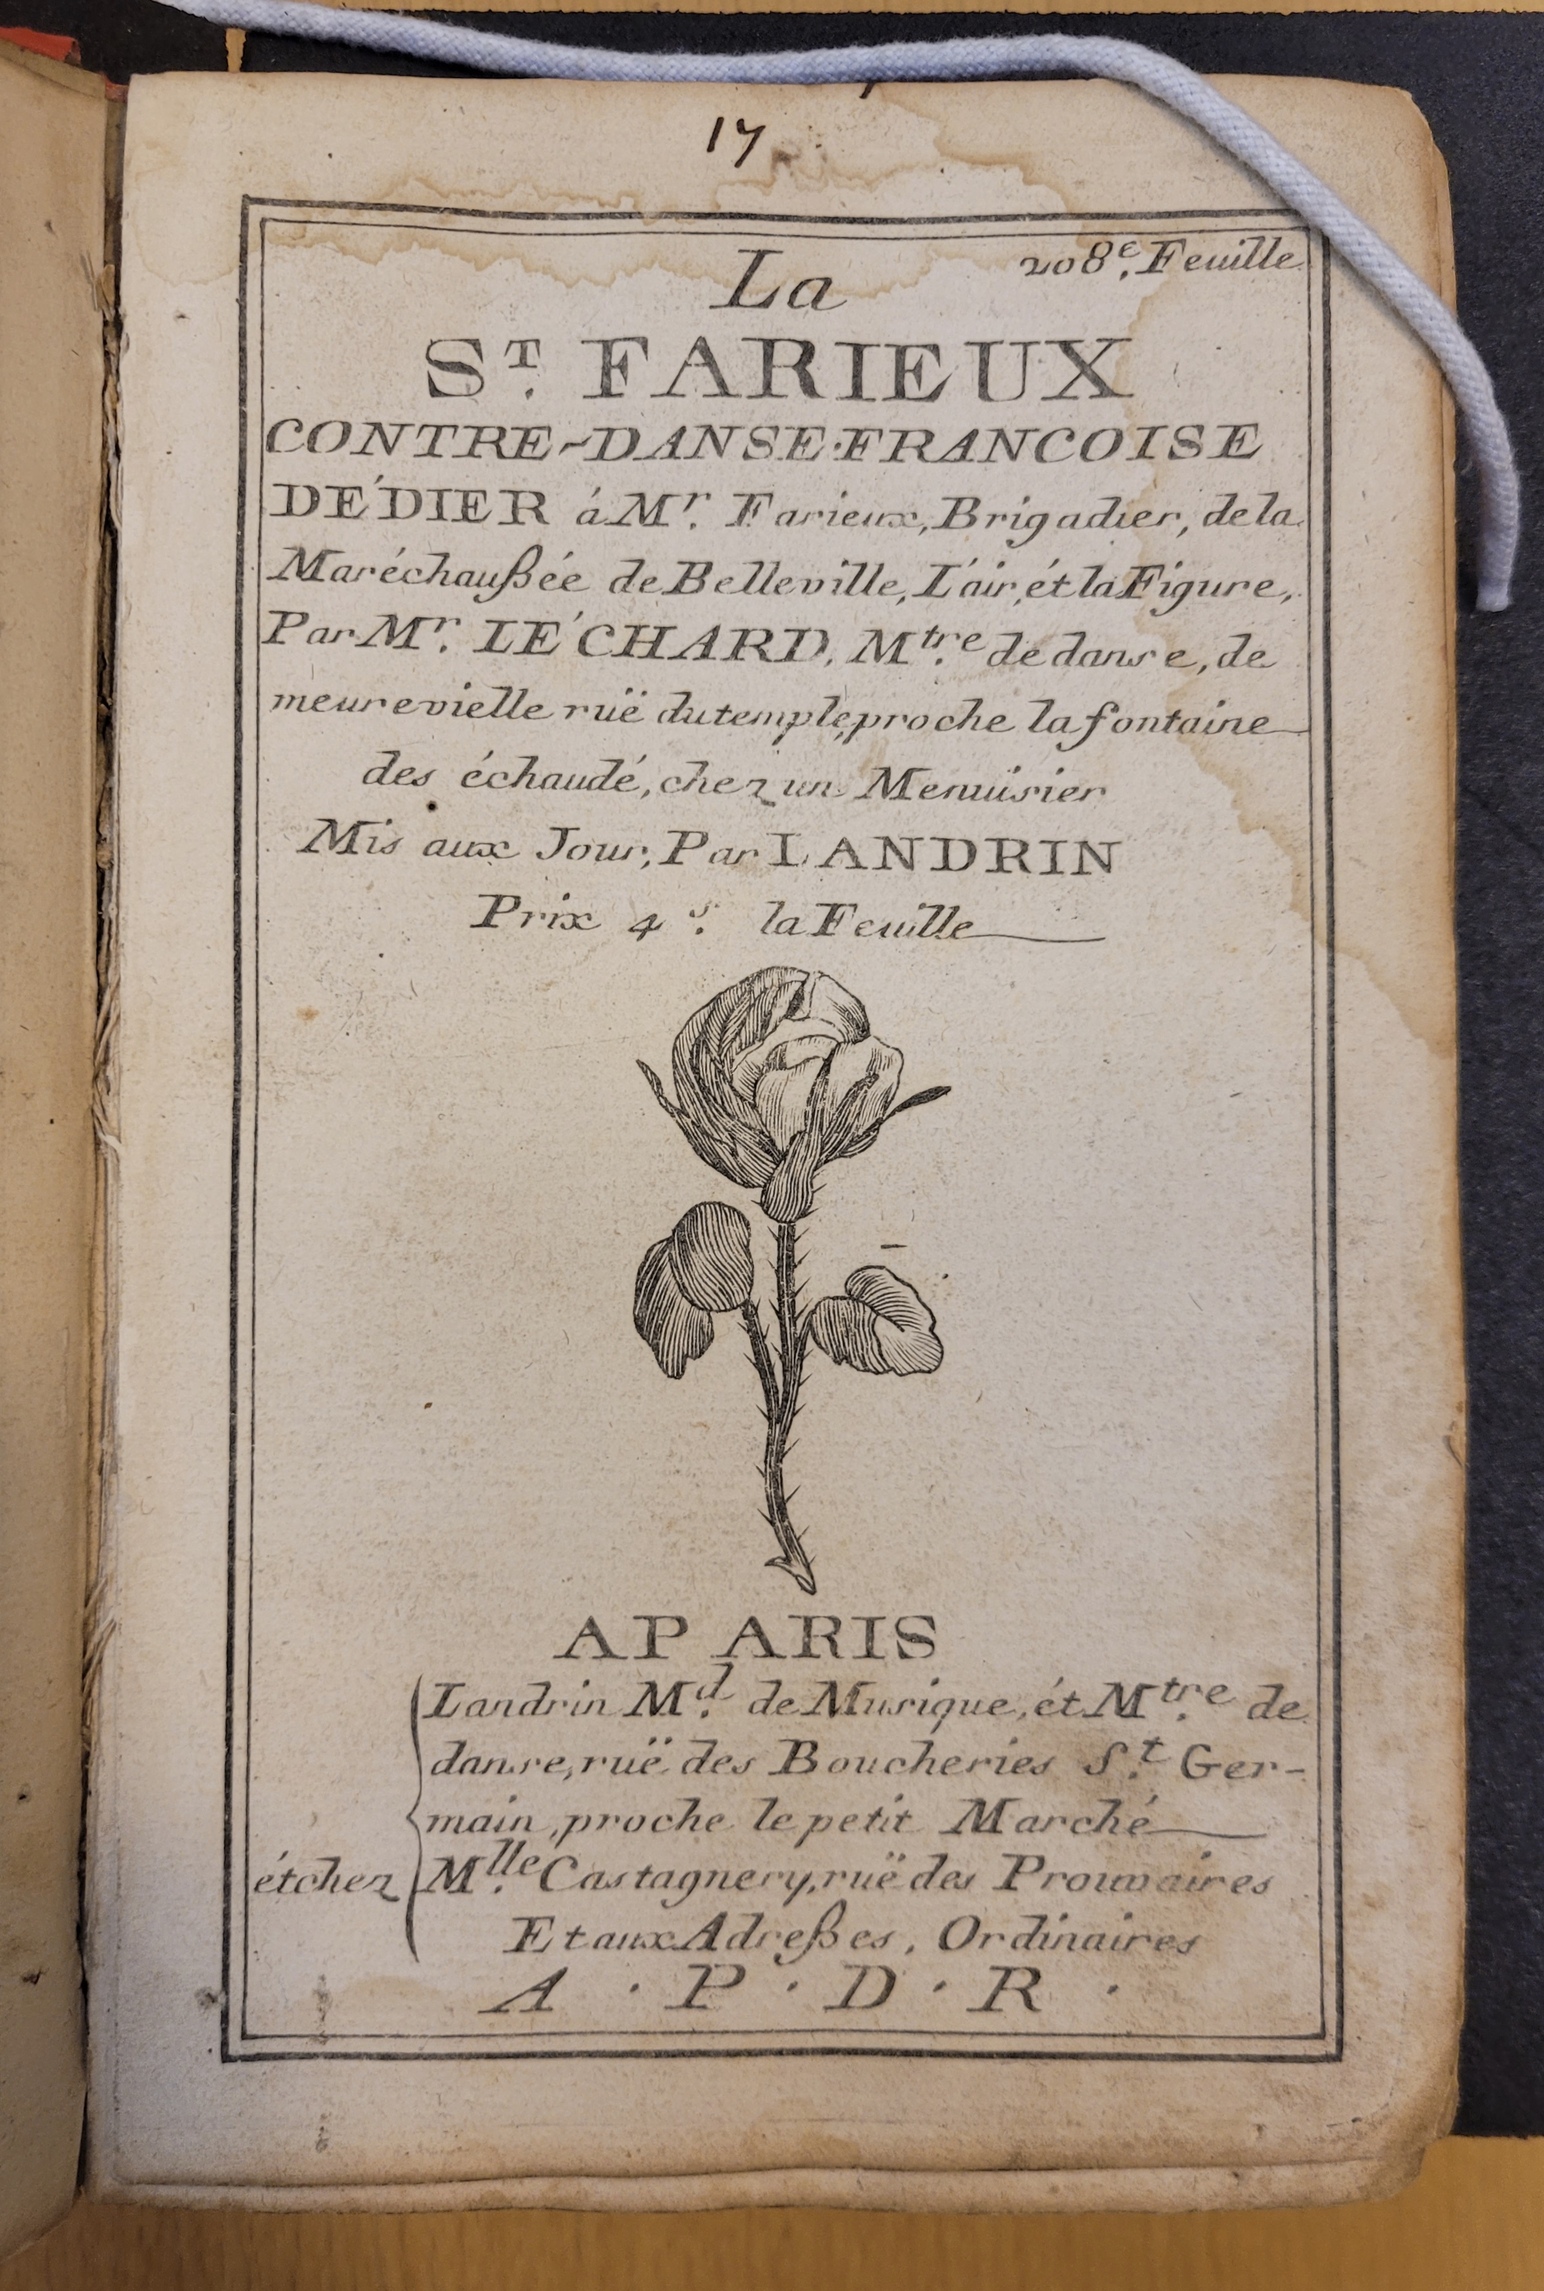 17
208e. Feuille
La
ST. FARIEUX
CONTRE-DANSE FRANCOISE
DÉDIER á Mr. Farieux, Brigadier, de la
Maréchaußée de Belleville, L'air, ét la Figure,
Par Mr. LÉCHARD, Mtre. de danse, de
meure vielle ruë du temple, proche la fontaine
des échaudé, chez un Menuisier
Mis aux Jour, Par LANDRIN
Prix 4 s. la Feuille
A PARIS
Landrin Md. de Musique, ét Mtre. de
danse, ruë des Boucheries St. Ger-
main, proche le petit Marché
ét chez Mlle. Castagnery, ruë des Prouvaires
Et aux Adreßes, Ordinaires
A . P . D . R .